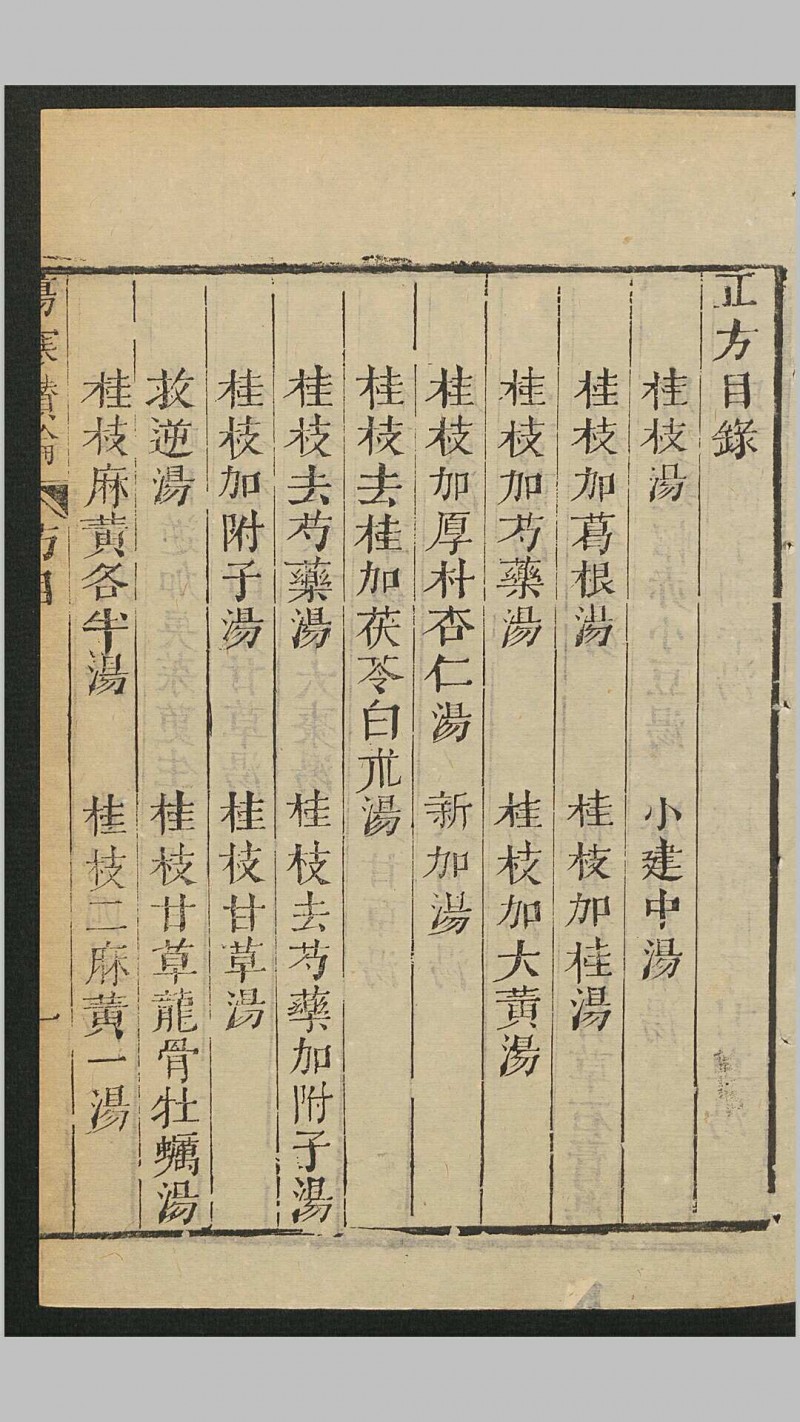 正方目錄
桂枝湯　小建中湯
桂枝加葛根湯　桂枝加桂湯
桂枝加芍藥湯　桂枝加大黃湯
桂枝加厚朴杏仁湯　新加湯
桂枝去桂加茯苓白朮湯
桂枝去芍藥湯　桂枝去芍藥加附子湯
桂枝加附子湯　桂枝甘草湯
救逆湯　桂枝甘草龍骨牡蠣湯
桂枝麻黃各半湯　桂枝二麻黃一湯
傷寒纘論　方目　一